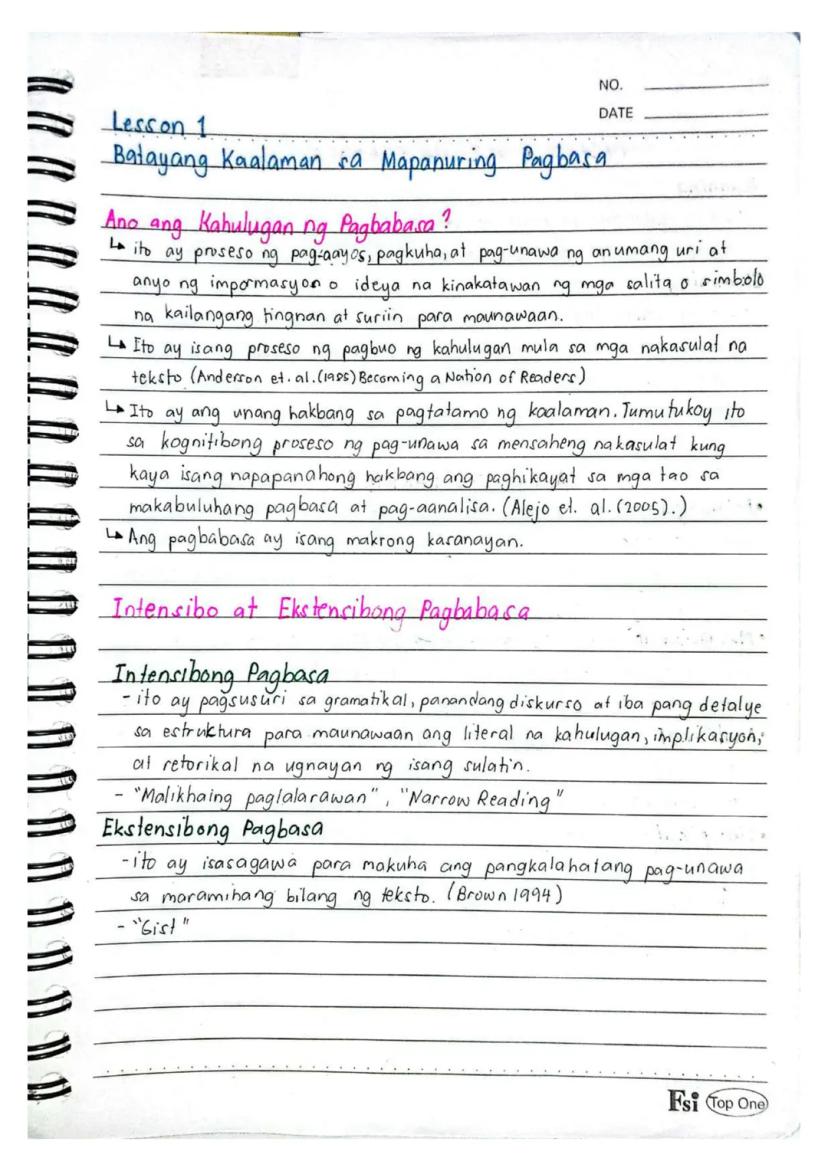 NO.
DATE
Lesson 1
Batayang Kaalaman sa Mapanuring Pagbasa
Ano ang Kahulugan ng Pagbabasa?
↳ ito ay proseso ng pag-aayos, pagkuha, at pag-unawa ng anumang uri at
anyo ng impormasyon o ideya na kinakatawan ng mga salita o simbolo
na kailangang tingnan at suriin para maunawaan.
↳ Ito ay isang proseso ng pagbuo ng kahulugan mula sa mga nakasulat na
teksto (Anderson et. al. (1985) Becoming a Nation of Readers)
↳ Ito ay ang unang hakbang sa pagtatamo ng kaalaman. Tumutukoy ito
sa kognitibong proseso ng pag-unawa sa mensaheng nakasulat kung
kaya isang napapanahong hakbang ang paghikayat sa mga tao sa
makabuluhang pagbasa at pag-aanalisa. (Alejo et. al. (2005).)
↳ Ang pagbabasa ay isang makrong kasanayan.
Intensibo at Ekstensibong Pagbabasa
Intensibong Pagbasa
- ito ay pagsusuri sa gramatikal, panandang diskurso at iba pang detalye
sa estruktura para maunawaan ang literal na kahulugan, implikasyon,
at retorikal na ugnayan ng isang sulatin.
- "Malikhaing paglalarawan", "Narrow Reading"
Ekstensibong Pagbasa
- ito ay isasagawa para makuha ang pangkalahatang pag-unawa
sa maramihang bilang ng teksto. (Brown 1994)
- "Gist"
Fsi Top One